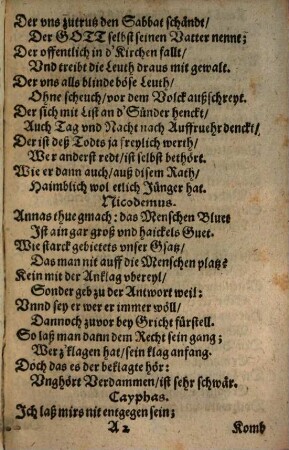 Der vns zutrutz den Sabbat schändt/
Der GOTT selbst seinen Vatter nennt;
Der offentlich in d'Kirchen fallt/
Vnd treibt die Leuth draus mit gewalt.
Der vns alls blinde böse Leuth/
Ohne scheuch/vor dem Volck außschreyt.
Der sich mit List an d'Sünder henckt/
Auch Tag vnd Nacht nach Auffruehr denckt/
Der ist deß Todts ja freylich werth/
Wer anderst redt/ist selbst bethört.
Wie er dann auch/auß disem Rath/
Haimblich wol etlich Jünger hat.
Nicodemus.
Annas thue gmach: das Menschen Bluet
Ist ain gar groß vnd haickels Guet.
Wie starck gebietets vnser Gsatz/
Das man nit auff die Menschen platz?
Kein mit der Anklag vbereyl/
Sonder geb zu der Antwort weil:
Vnnd sey er wer er immer wöll/
Dannoch zuvor bey Gricht fürstell.
So laß man dann dem Recht sein gang;
Wer z'klagen hat/sein klag anfang.
Doch das es der beklagte hör:
Vnghört Verdammen/ist sehr schwär.
Cayphas.
Ich laß mirs nit entgegen sein;
A 2 Komb